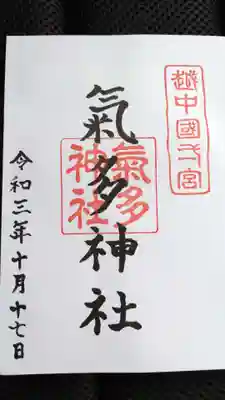 越中國一宮
氣多神社
氣多
神社
令和三年十月十七日